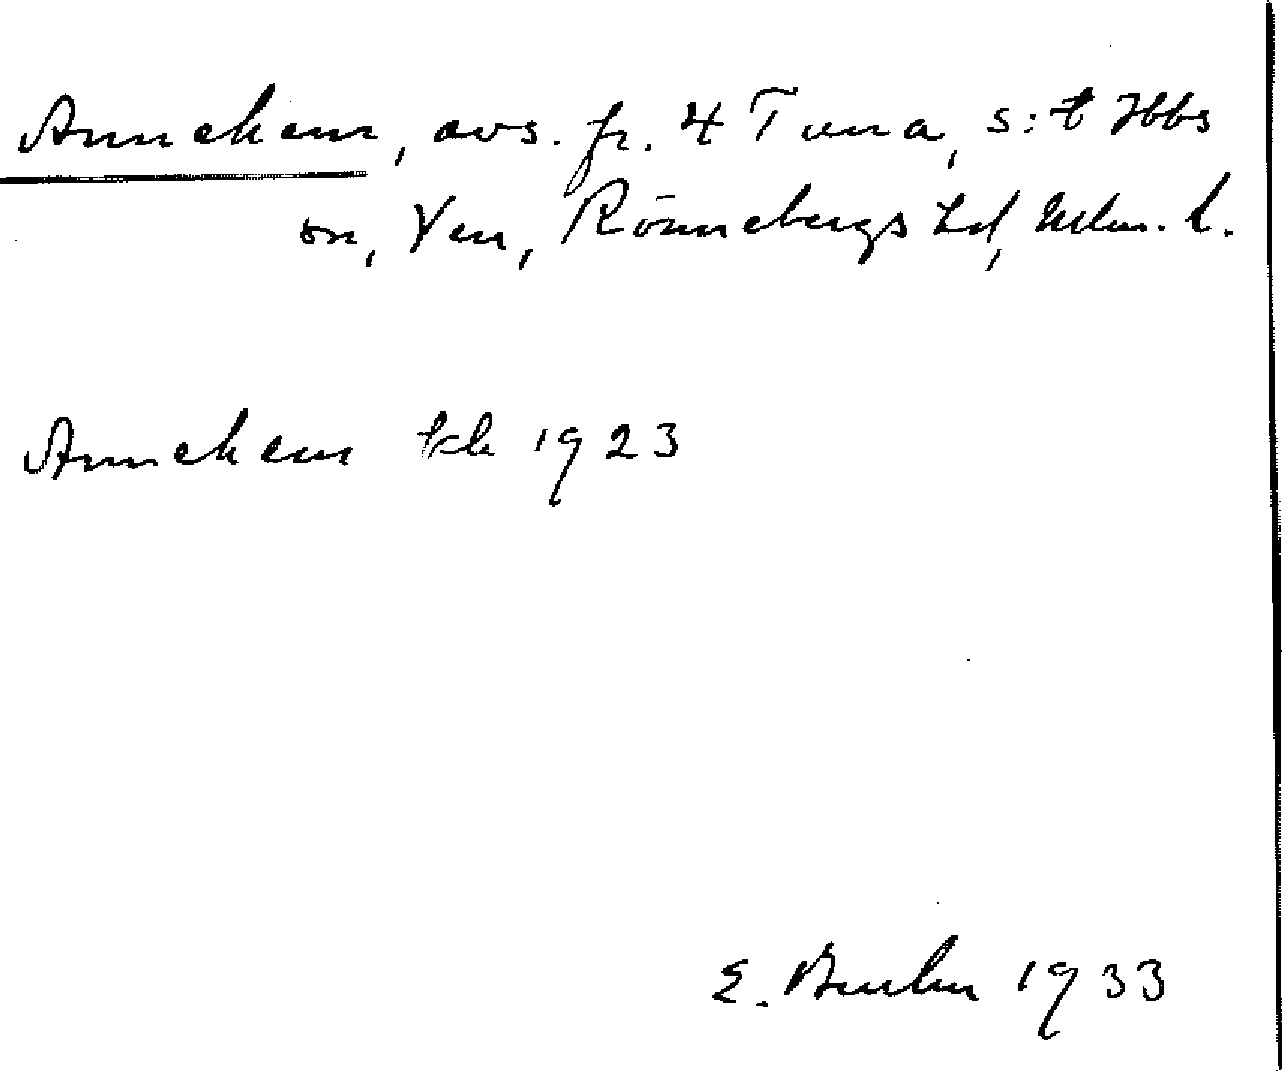 Annehem, avs. fr. 4 Tuna, s:t Ibbs
sn, Ven, Rönnebergs hd, Mlm. l.
Annehem tk 1923
E. 1933